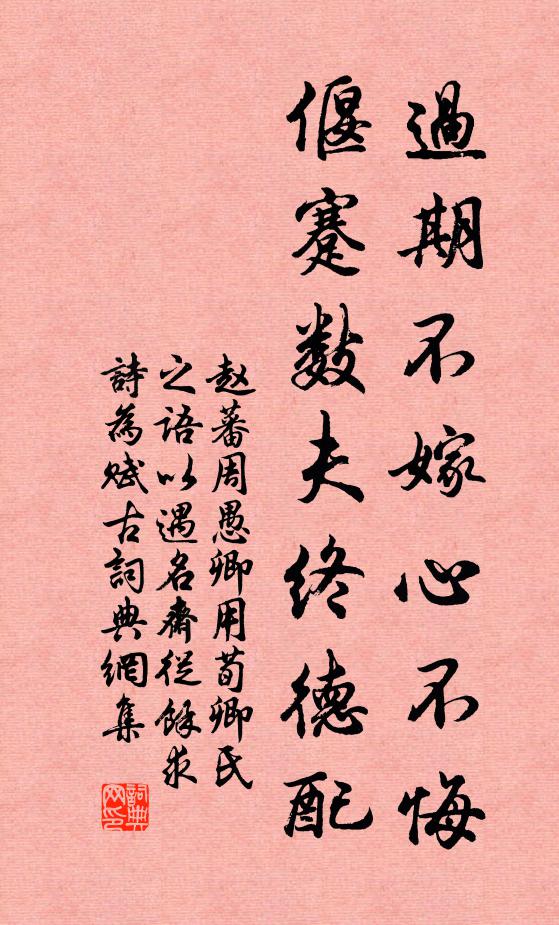 過期不嫁心不悔
偃蹇數夫終德配
赵蕃周愚卿用荀卿氏
之語以遇名齋從餘求
詩為赋古詞典網集
詞典網印